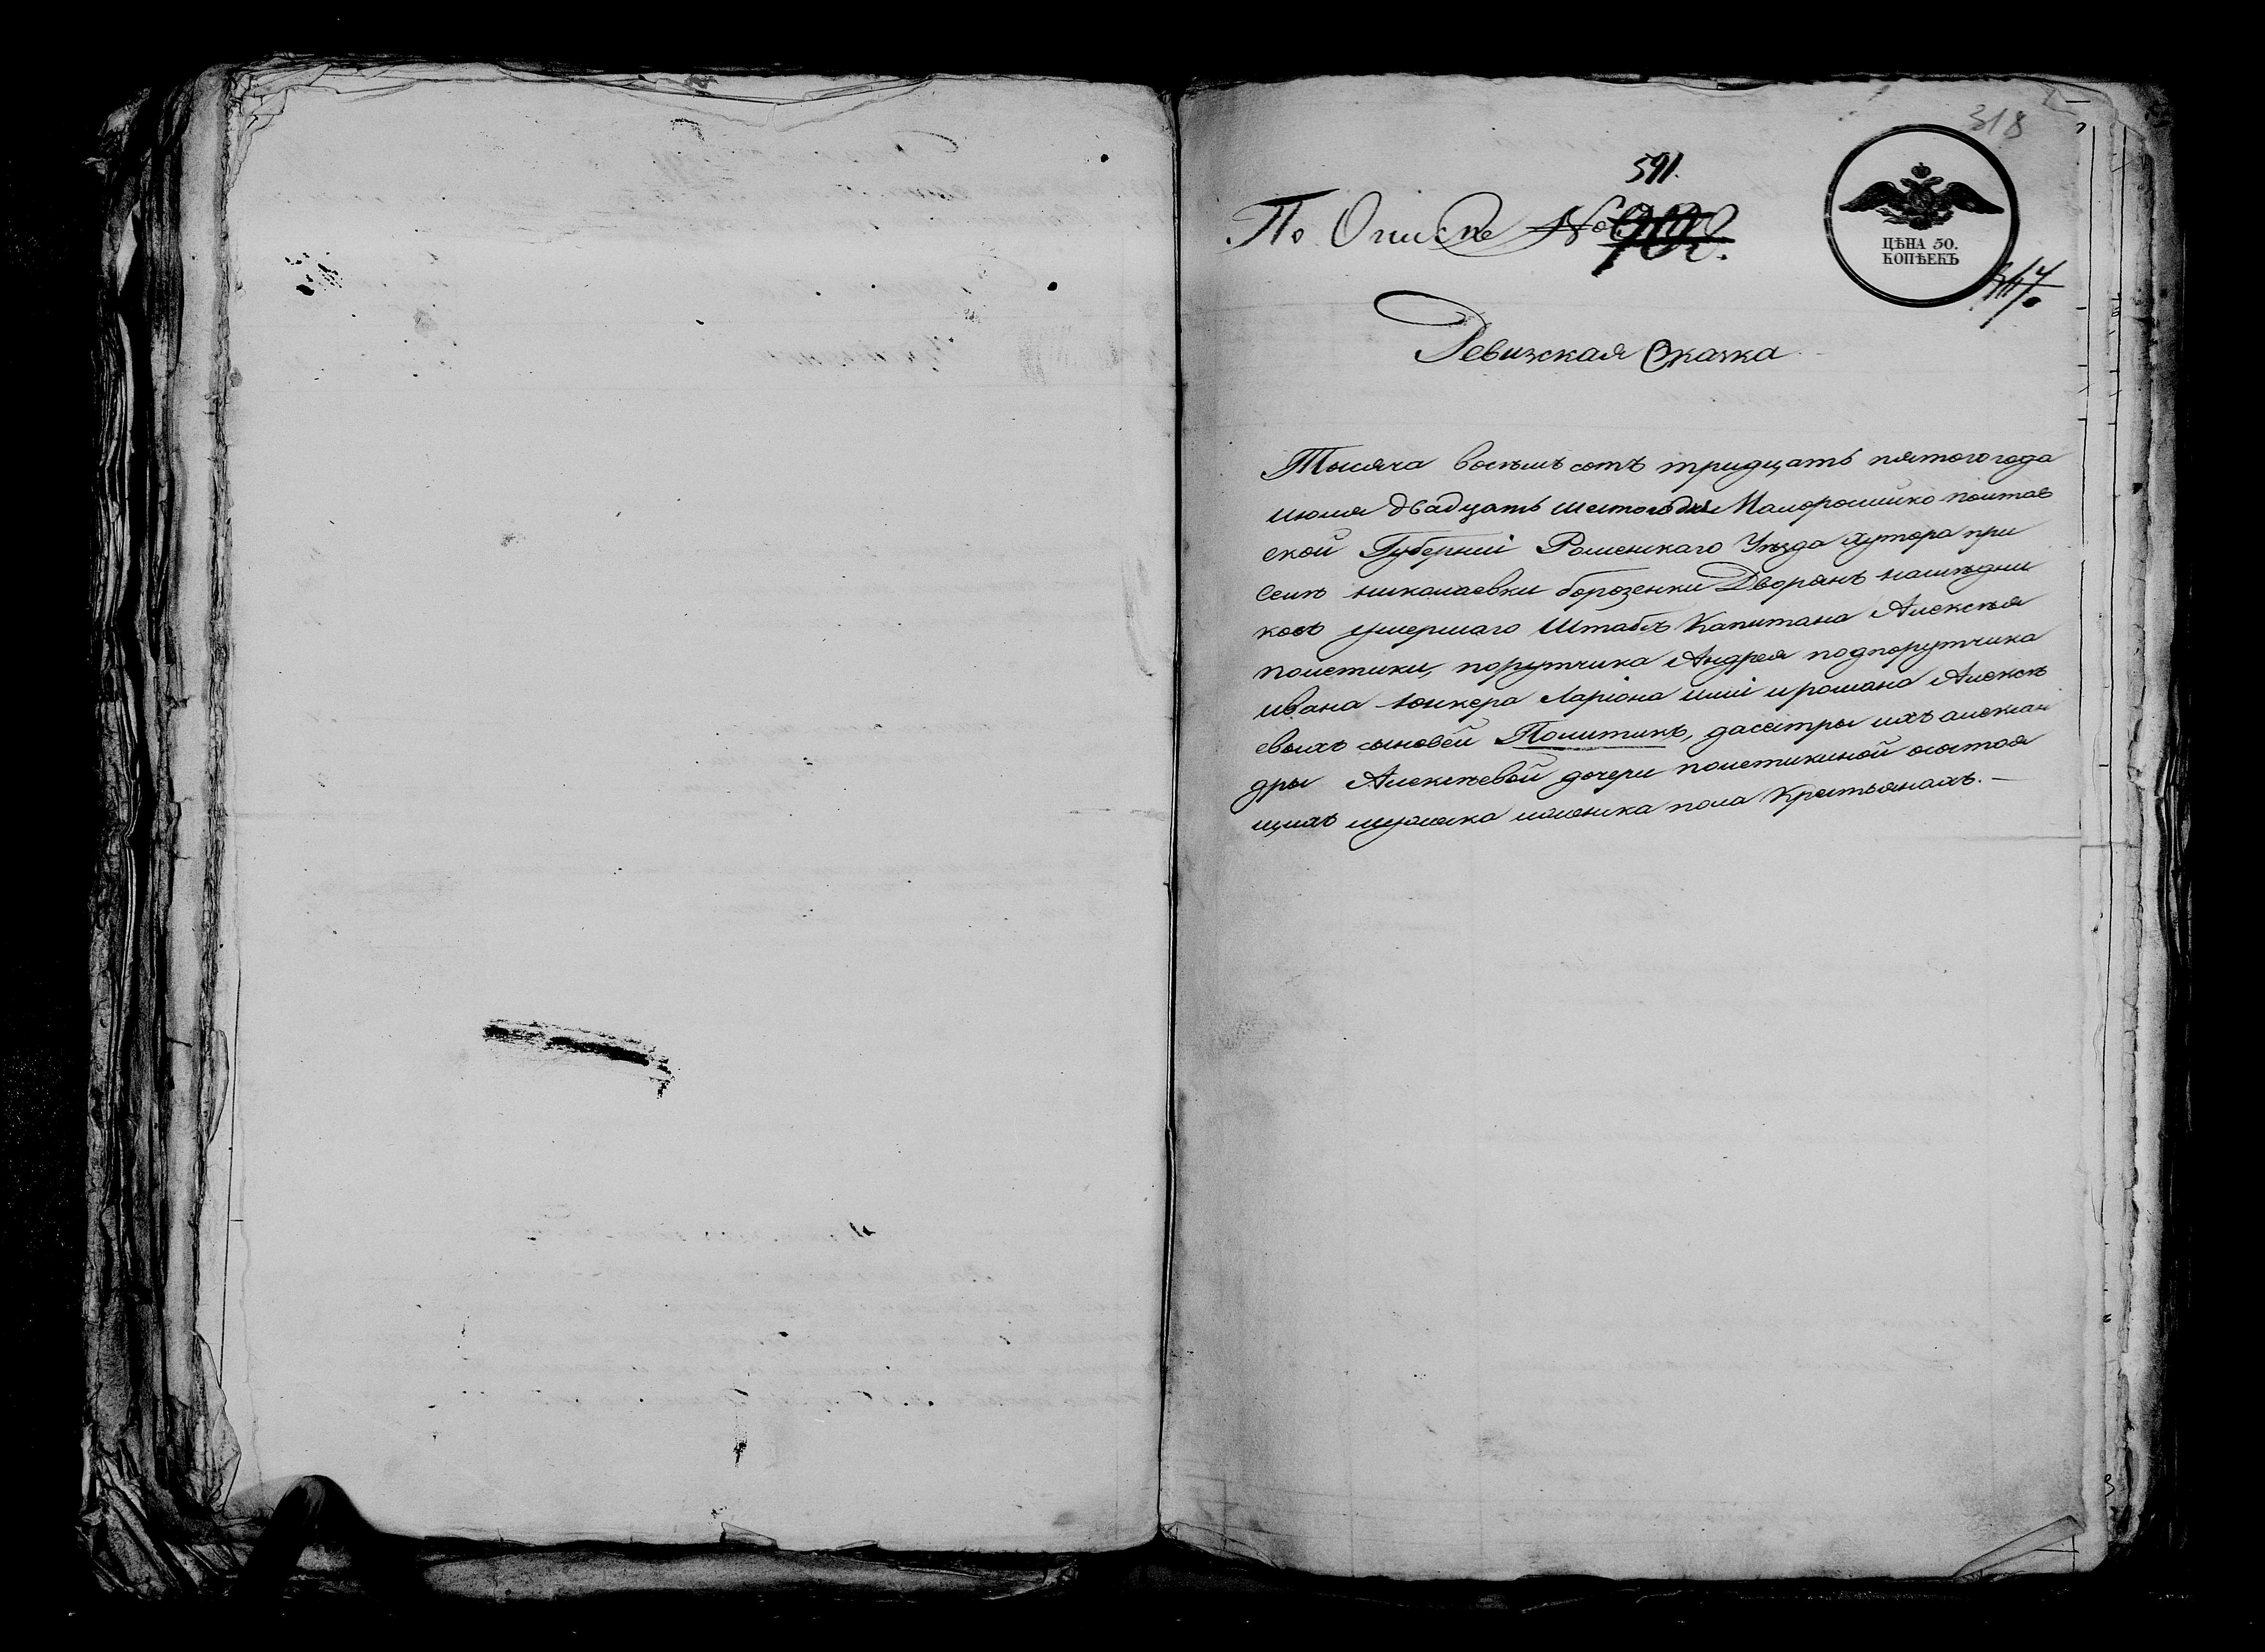 318
591.
По Описѣ №
ЦѢНА 50.
КОПѢЕКЪ
317
Ревижская Сказка
Тысяча восемъ сотъ тридцать пятого года
июля двадцать шестого дня Малоросийко полтав
ской Губернии Роменскаго Уѣзда Хутора при
селѣ николаевки борозенки Дворянъ наслѣдни
ковъ умершаго Штабсъ Капитана Алексѣя
полетики, порутчика Андрея подпорутчика
ивана юнкера Ларіона илиі и романа Алексѣ
евыхъ сыновей Политикъ, да сестры ихъ алексан
дры Алексѣевой дочери полетикиной осостоя
щихъ мужеска иженска пола Крестьянахъ. —